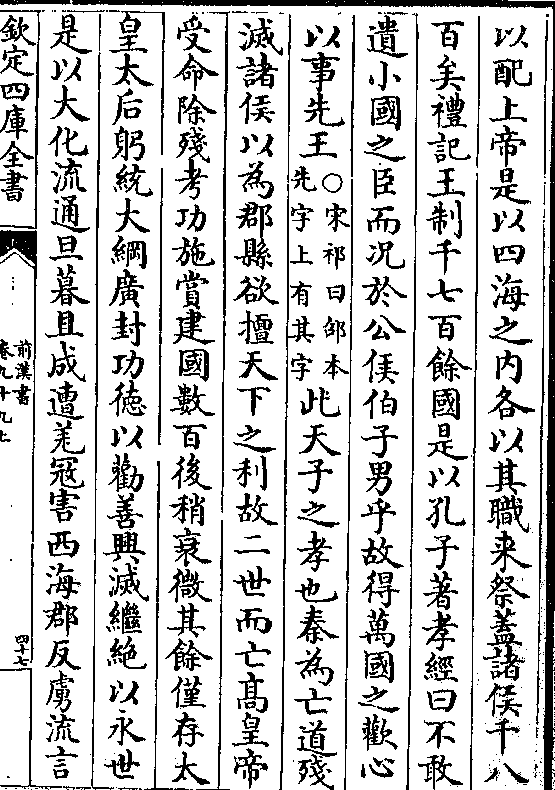 以配上帝是以四海之内各以其職来祭蓋諸侯千八
百矣禮記王制千七百餘國是以孔子著孝經曰不敢
遺小國之臣而况於公侯伯子男乎故得萬國之歡心
以事先王○宋祁曰邰本先字上有其字此天子之孝也秦為亡道殘
滅諸侯以為郡縣欲擅天下之利故二世而亡髙皇帝
受命除殘考功施賞建國數百後稍衰微其餘僅存太
皇太后躬統大綱廣封功德以勸善興滅繼絶以永世
是以大化流通旦暮且成遭羌冦害西海郡反虜流言
欽定四庫全書
前漢書
卷九十九上
四十七